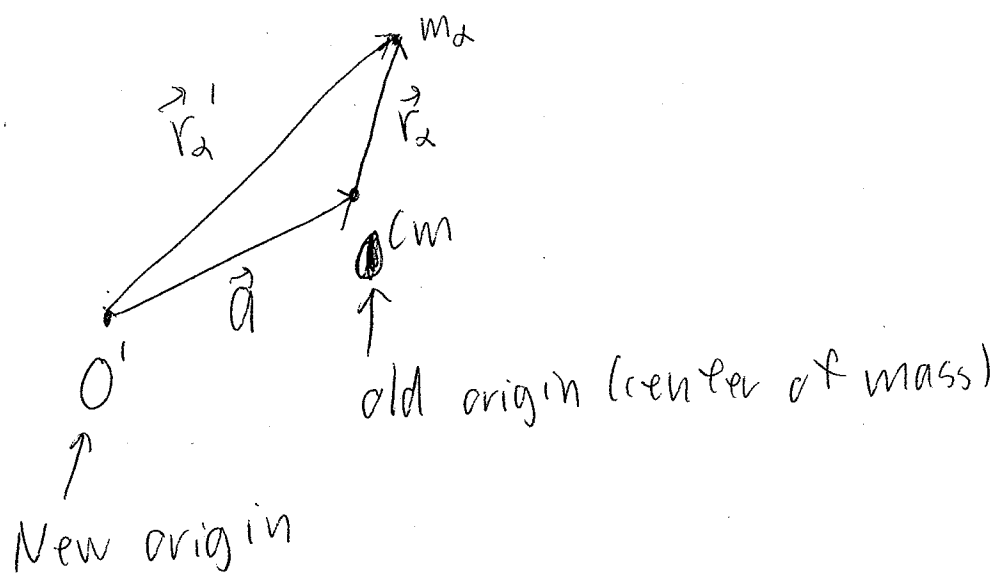 m_α
r⃗_α'
r⃗_α
cm
a⃗
O'
old origin (center of mass)
New origin